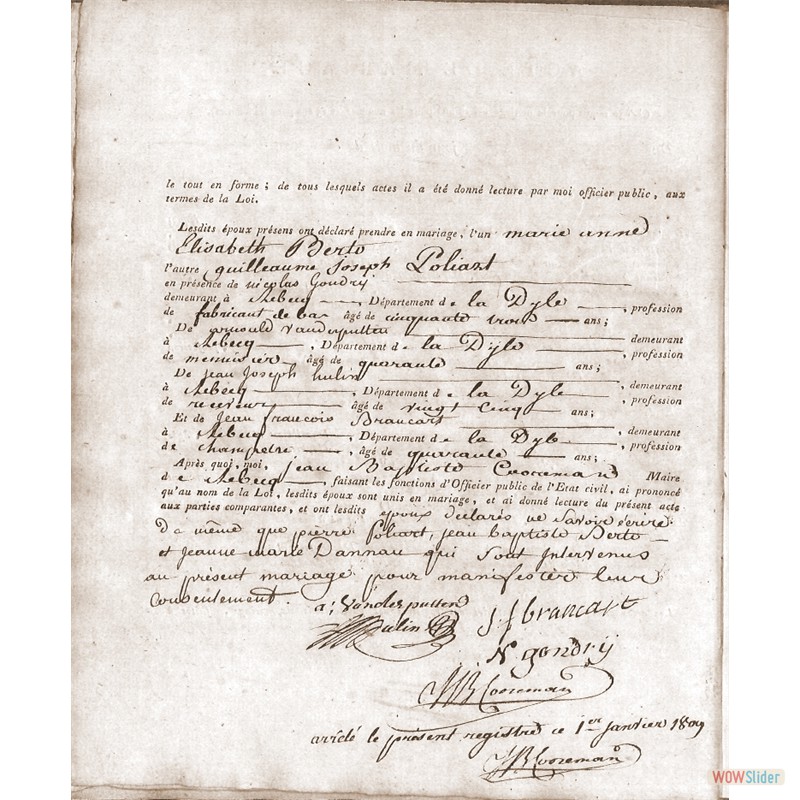 le tout en forme ; de tous lesquels actes il a été donné lecture par moi officier public, aux
termes de la Loi.
Lesdits époux présens ont déclaré prendre en mariage, l'un marie anne
Elisabeth Berto
l'autre guilleaume Joseph Poliart
en présence de nicolas Gondrij
demeurant à Rebecq Département de la Dyle , profession
de fabricant de bas âgé de cinquante trois ans ;
De romould Vanderputten demeurant
à Rebecq , Département de la Dyle , profession
de meunier âgé de quarante ans ;
De jean Joseph hulin , demeurant
à Rebecq , Département de la Dyle , profession
de receveur âgé de vingt cinq ans ;
Et de Jean francois Brancart
à Rebecq , Département de la Dyle , demeurant
de champetre , âgé de quarante ans ; profession
Après quoi, moi, jean Baptiste Cooreman Maire
de Rebecq , faisant les fonctions d'Officier public de l'Etat civil, ai prononcé
qu'au nom de la Loi, lesdits époux sont unis en mariage, et ai donné lecture du présent acte
aux parties comparantes, et ont lesdits epoux declarés ne savoir ecrire
de même que pierre Poliart, jean baptiste Berto
et Jeanne marie Dannau qui sont Intervenus
au présent mariage pour manifester leur
consentement.
a; Vanderputten
hulin
J f brancart
N gondrij
JB Cooreman
arrêté le présent registre ce 1er janvier 1809
JB Cooreman
WOWSlider